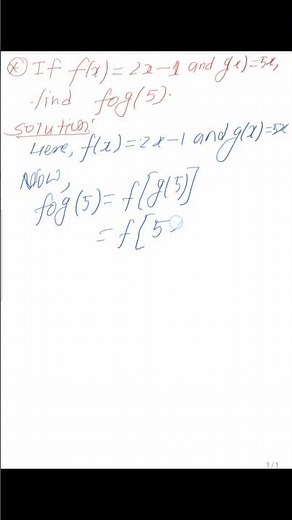 * If f(x) = 2x-1 and g(x) = 5x,
find fog(5).
solution:
Here, f(x) = 2x-1 and g(x) = 5x
Now,
fog(5) = f[g(5)]
= f[5×
1/1